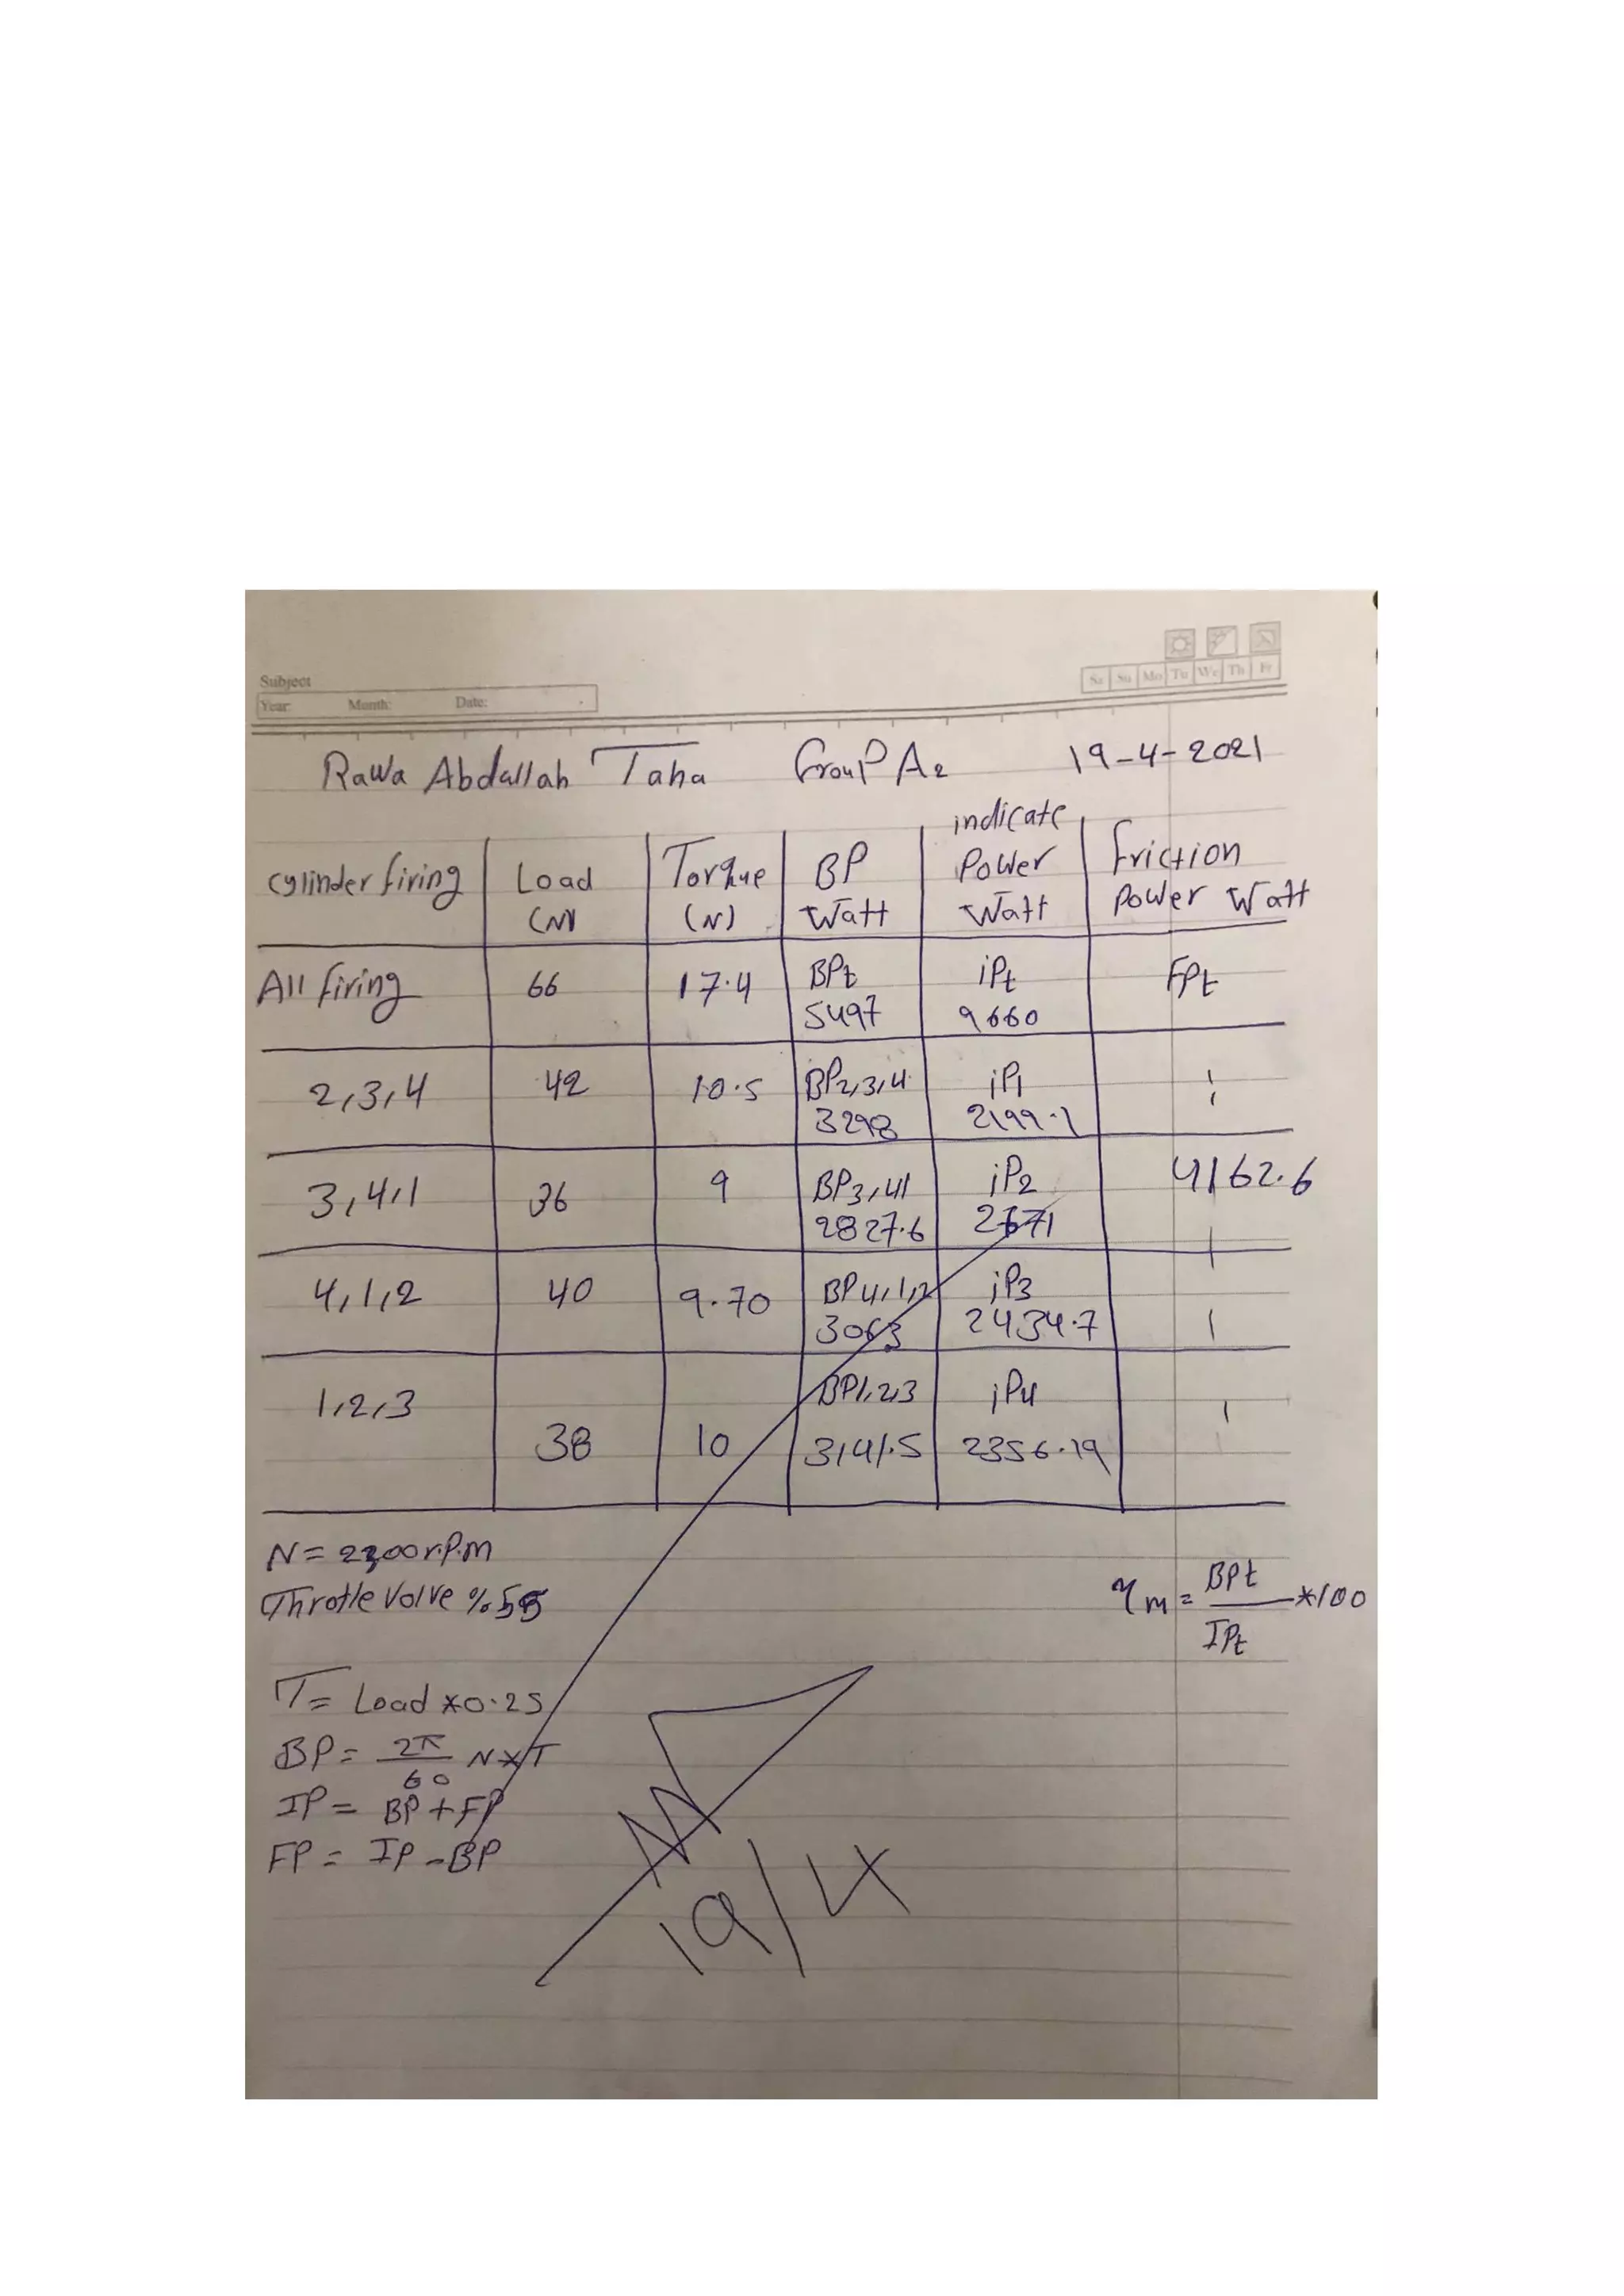 Subject
Year: Month: Date:
Sa Su Mo Tu We Th Fr
Rawa Abdallah Taha Group A2 19-4-2021
cylinder firing Load (N) Torque (N) BP Watt indicate Power Watt friction Power Watt
All firing 66 17.4 BPt 5497 iPt 9660 FPt
2,3,4 42 10.5 BP2,3,4 3298 iP1 2199.1
3,4,1 36 9 BP3,41 2827.6 iP2 2671 4162.6
4,1,2 40 9.70 BP4,1,2 3063 iP3 2434.7
1,2,3 38 10 BP1,2,3 3141.5 iP4 2356.19
N = 2300 r.P.m
Throtle Valve %
ηm = BPt / IPt *100
T = Load *0.25
BP = 2π/60 N*T
IP = BP + FP
FP = IP - BP
19/4